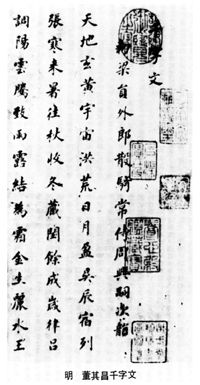 千字文
勅梁員外郎散騎常侍周興嗣次韻
天地玄黃宇宙洪荒日月盈昃辰宿列
張寒来暑往秋收冬藏閏餘成歲律吕
調陽雲騰致雨露結為霜金生麗水玉
明 董其昌千字文